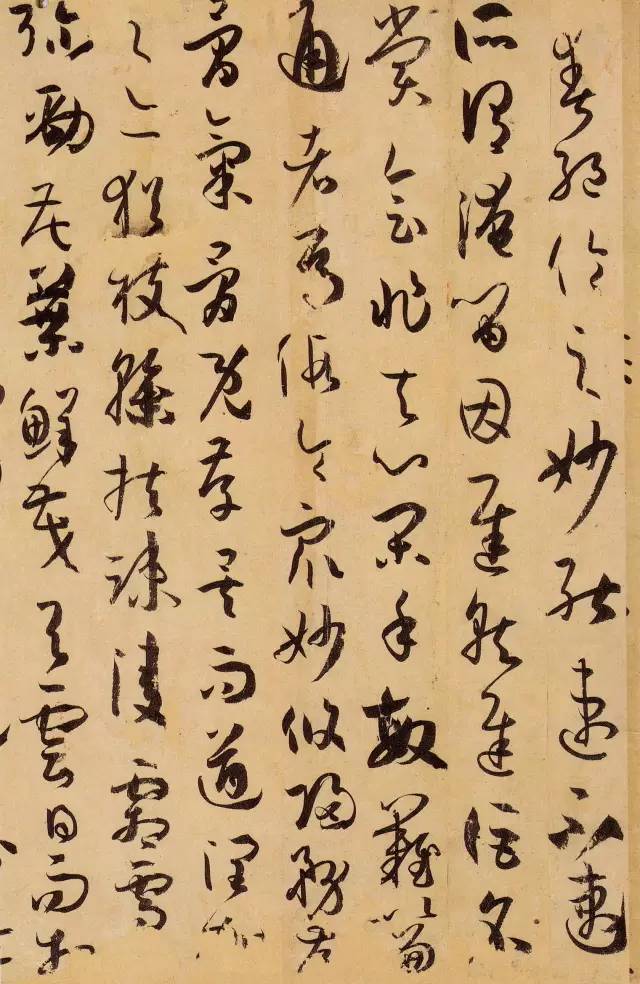 爽絕倫之妙能速不速
所謂淹留因遲就遲詎名
賞會非夫心閑手敏難以兼
通者焉假令眾妙攸歸務存
骨氣骨既存矣而遒潤加
之亦猶枝幹扶疎凌霜雪
彌勁花葉鮮茂與雲日而相